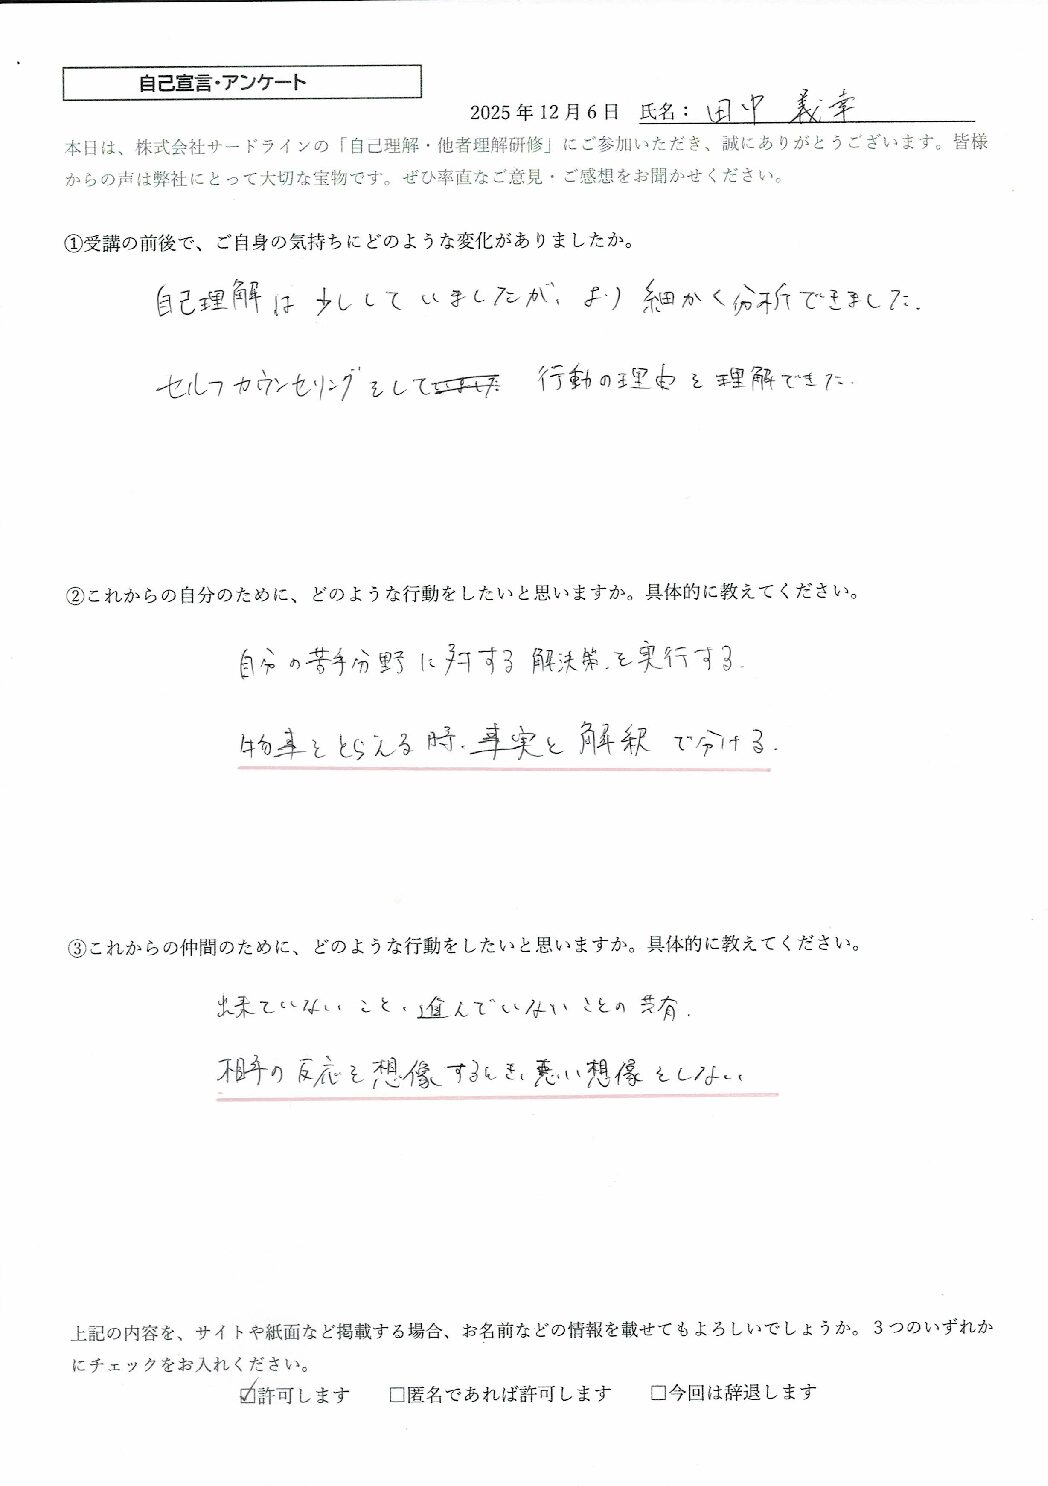 自己宣言・アンケート
2025年12月6日 氏名： 田中 義幸
本日は、株式会社サードラインの「自己理解・他者理解研修」にご参加いただき、誠にありがとうございます。皆様
からの声は弊社にとって大切な宝物です。ぜひ率直なご意見・ご感想をお聞かせください。
①受講の前後で、ご自身の気持ちにどのような変化がありましたか。
自己理解は少ししていましたが、より細かく分析できました.
セルフカウンセリングをして 行動の理由を理解できた.
②これからの自分のために、どのような行動をしたいと思いますか。具体的に教えてください。
自分の苦手分野に対する解決策を実行する.
物事をとらえる時、事実と解釈で分ける.
③これからの仲間のために、どのような行動をしたいと思いますか。具体的に教えてください。
出来ていないこと、進んでいないことの共有.
相手の反応を想像するとき、悪い想像をしない
上記の内容を、サイトや紙面など掲載する場合、お名前などの情報を載せてもよろしいでしょうか。3つのいずれか
にチェックをお入れください。
☑許可します □匿名であれば許可します □今回は辞退します